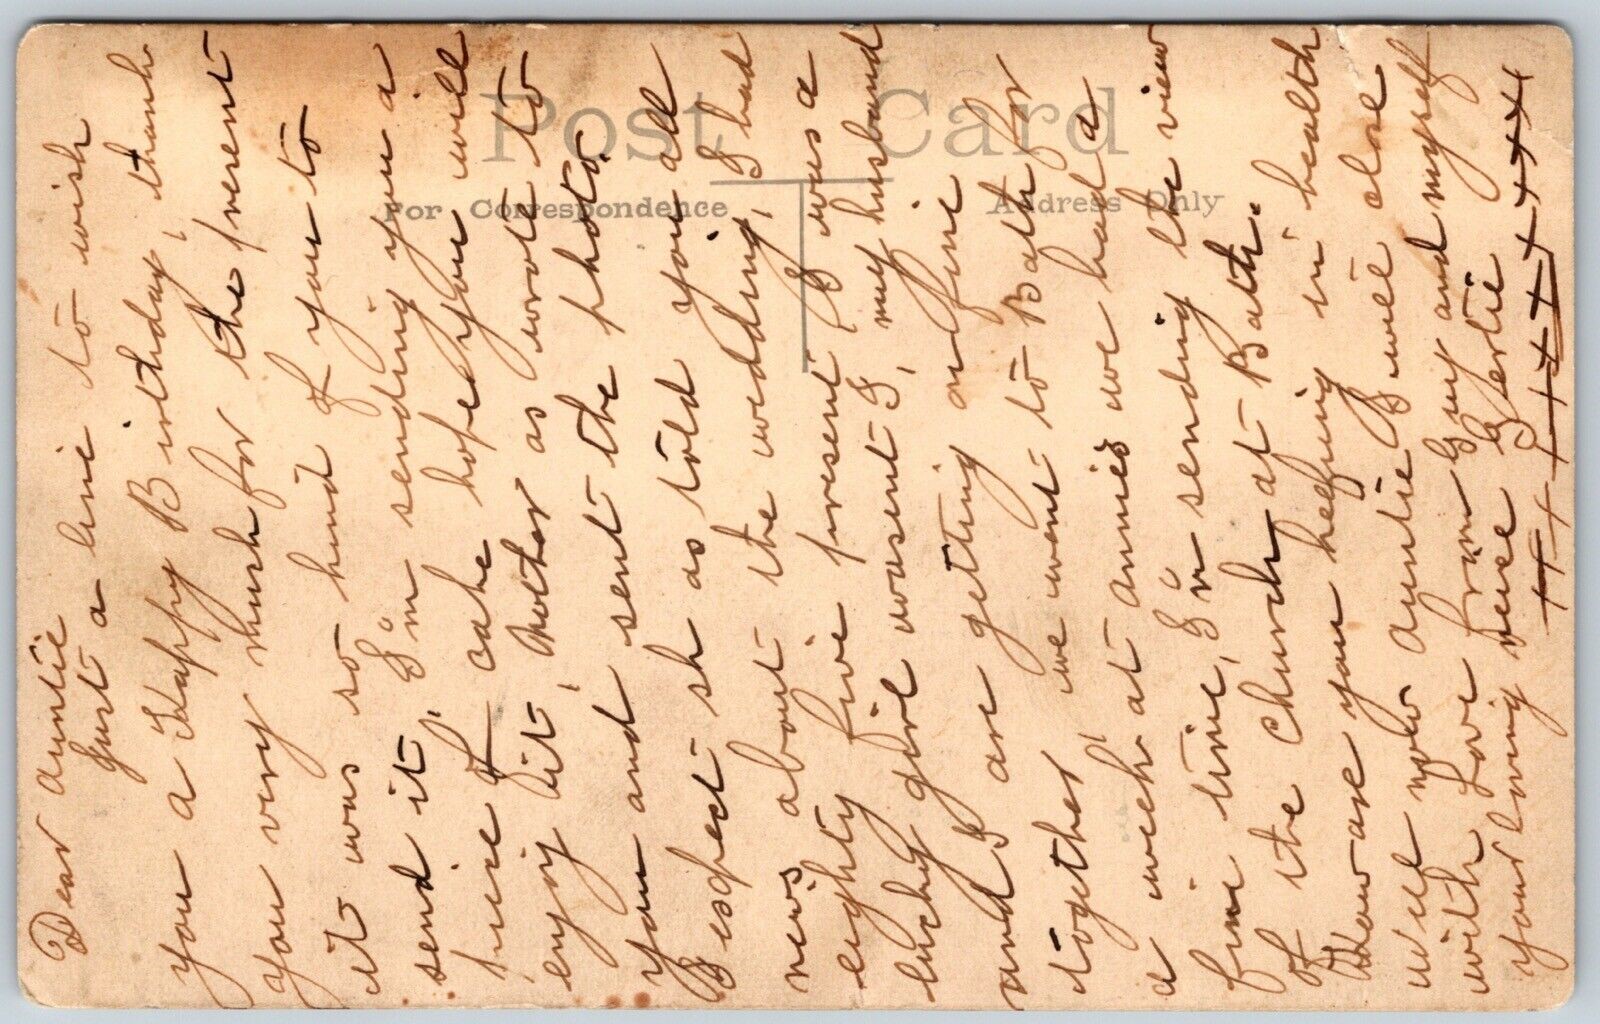 Post Card
For Correspondence
Address Only
Dear Auntie
Just a line to wish
you a Happy Birthday, thank
you very mush for the present
it was so kind of you to
send it, I'm sending you a
piece of cake hope you will
enjoy it, Mother as wrote to
you and sent the photo.
I expect sh as told you all
news about the wedding, I had
eighty five present I was a
lucky girl wasent I, my husband
and I are getting on fine
together, we went to Bath for
a week at Annies we had a
fine time, I'm sending the view
of the Church at Bath.
How are you keeping in health
Well now Auntie I will close
with Love from Guy and myself
your loving neice Gertie